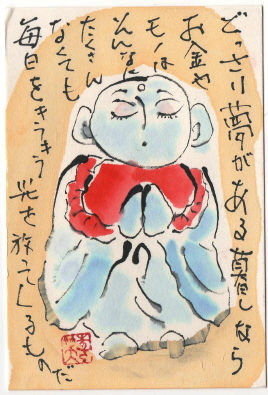 どっさり夢がある暮しなら
お金や
モノは
そんなに
たくさん
なくても
毎日をきらきら
光を放てくるものだ